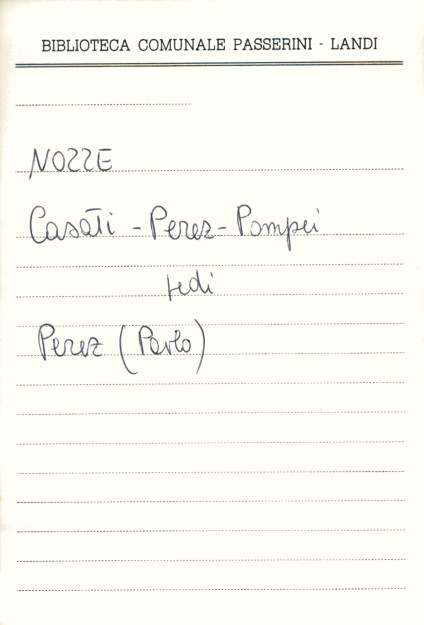 BIBLIOTECA COMUNALE PASSERINI - LANDI
NOZZE
Casati - Perez - Pompei
vedi
Perez (Paolo)